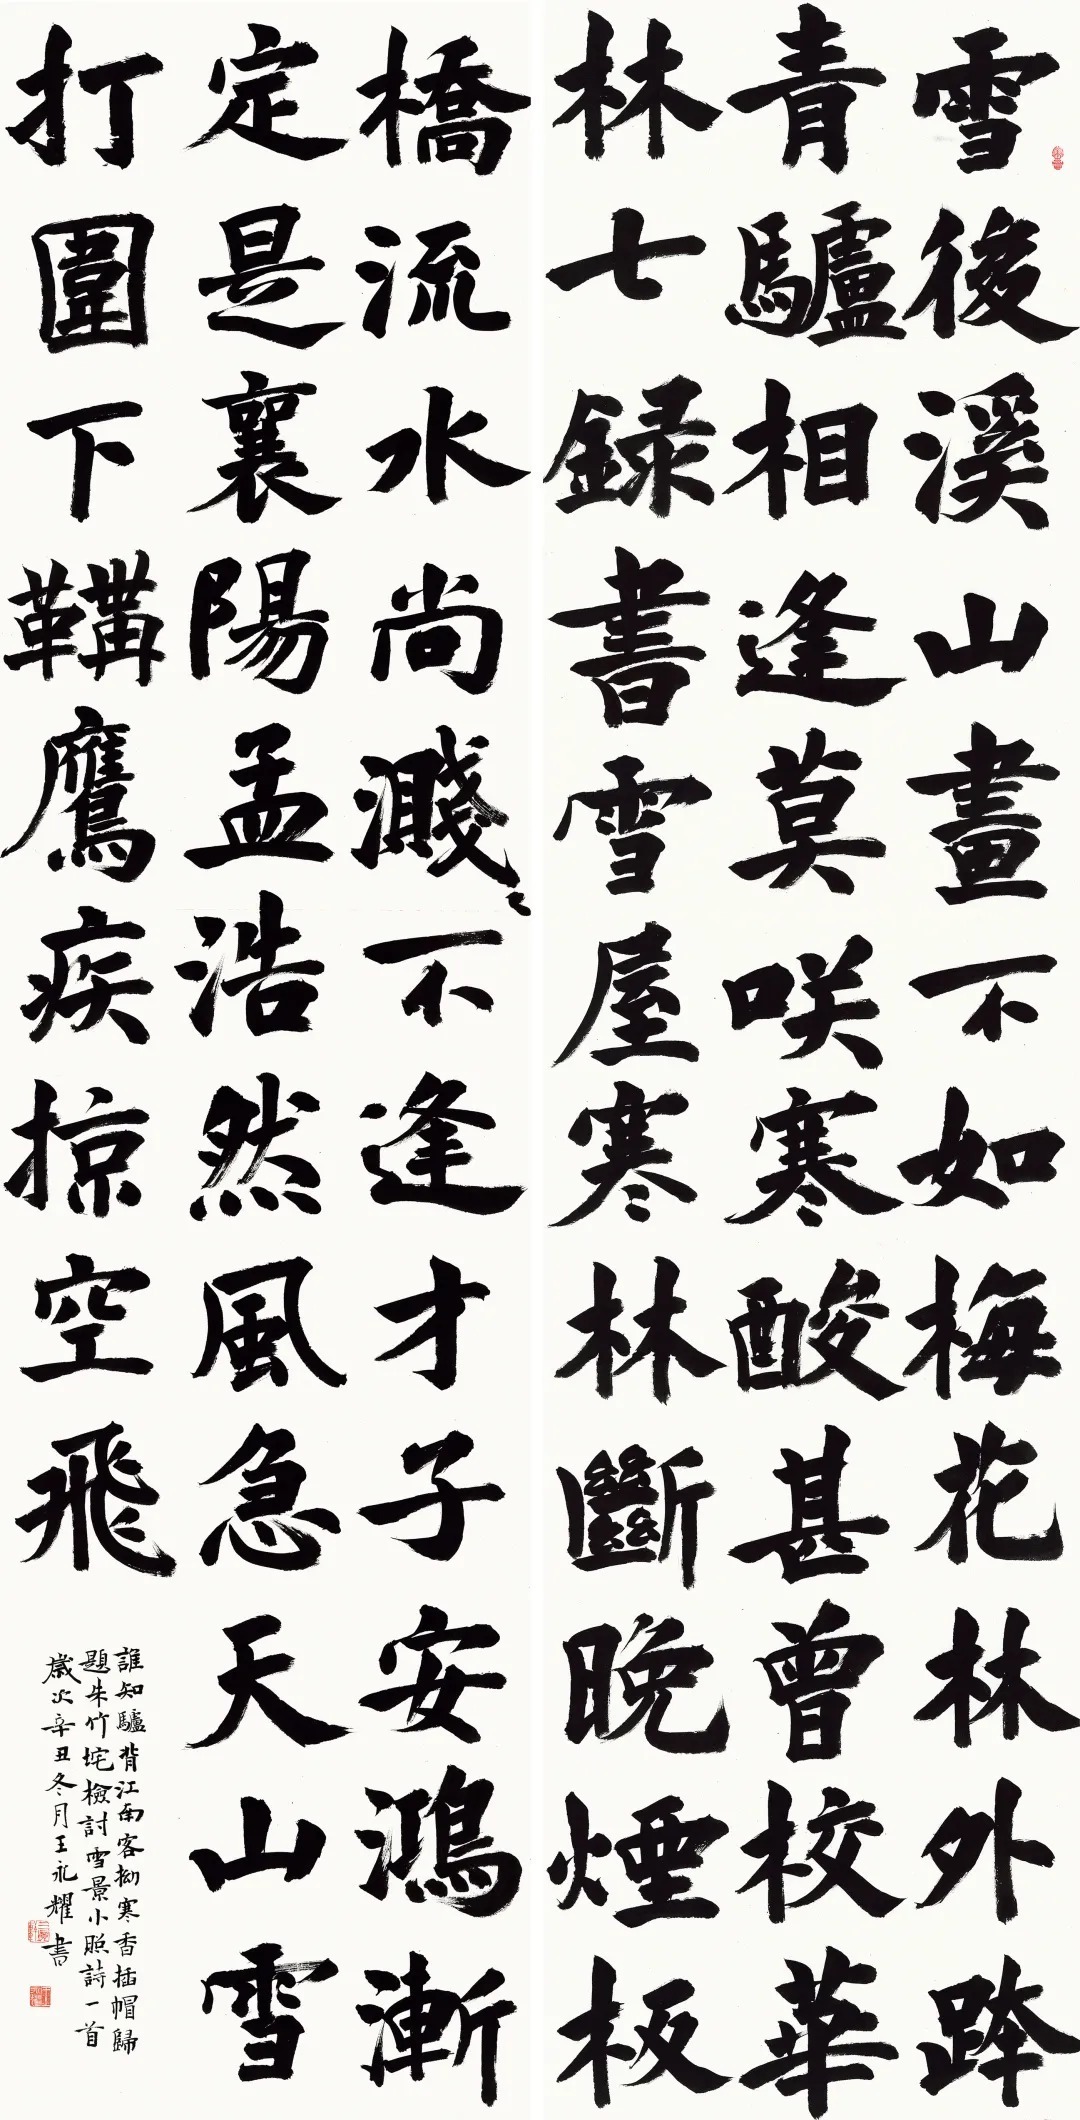 雪後溪山畫不如梅花林外跨
青驢相逢莫咲寒酸甚曾校華
林七録書雪屋寒林斷晚煙板
橋流水尚濺〻不逢才子安鴻漸
定是襄陽孟浩然風急天山雪
打圍下鞲鷹疾掠空飛
誰知驢背江南客拗寒香插帽歸
題朱竹垞檢討雪景小照詩一首
歲次辛丑冬月王永耀書